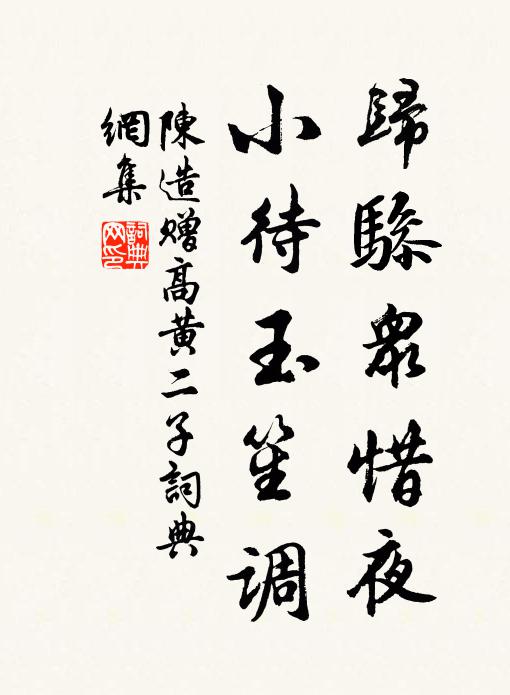 歸驂衆惜夜
小待玉笙调
陳造赠高黄二子詞典
網集
詞典
网印